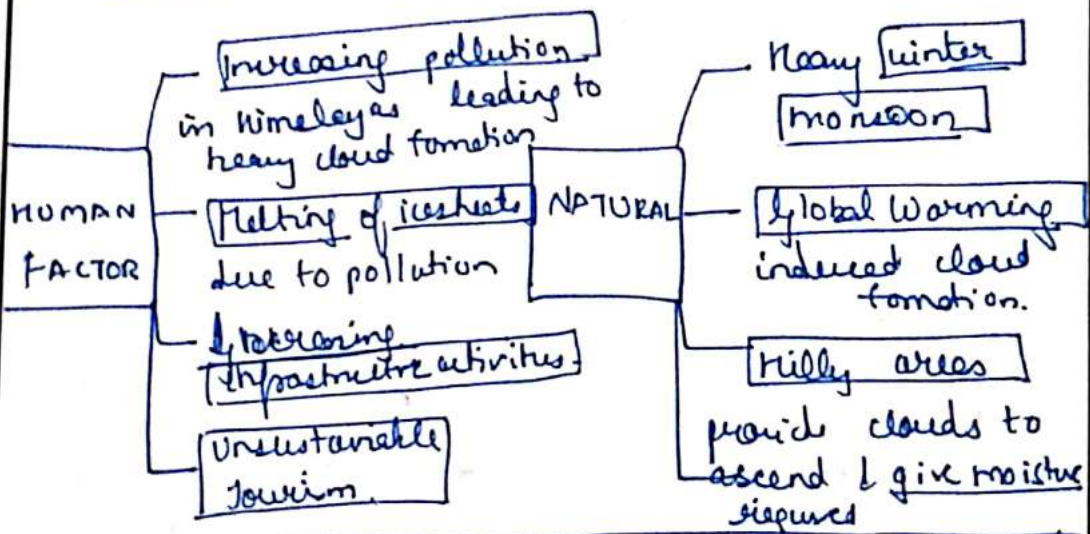 HUMAN
FACTOR
Increasing pollution
in Himalayas leading to
heavy cloud formation
Melting of icesheets
due to pollution
Increasing
infrastructre activities.
Unsustainable
Tourism.
NATURAL
Heavy winter
monsoon
Global Warming
induced cloud
formation.
Hilly areas
provide clouds to
ascend & give moisture
required